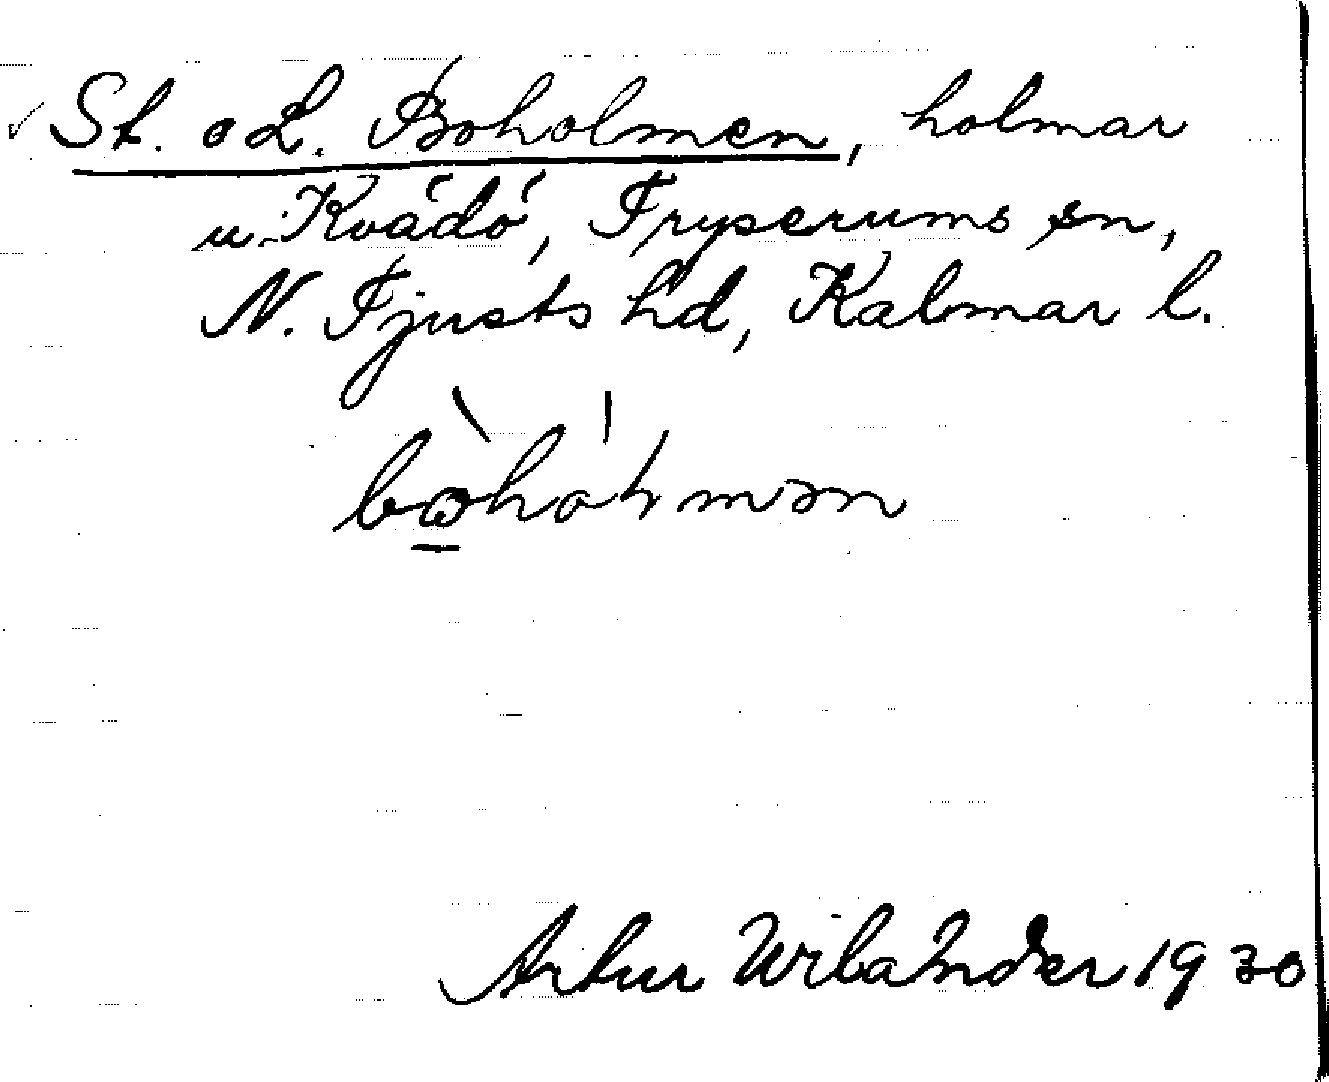 St. o L. Boholmen, holmar
u. Kvädö, Tryserums sn,
N. Tjusts hd, Kalmar l.
Artur Wilander 1930